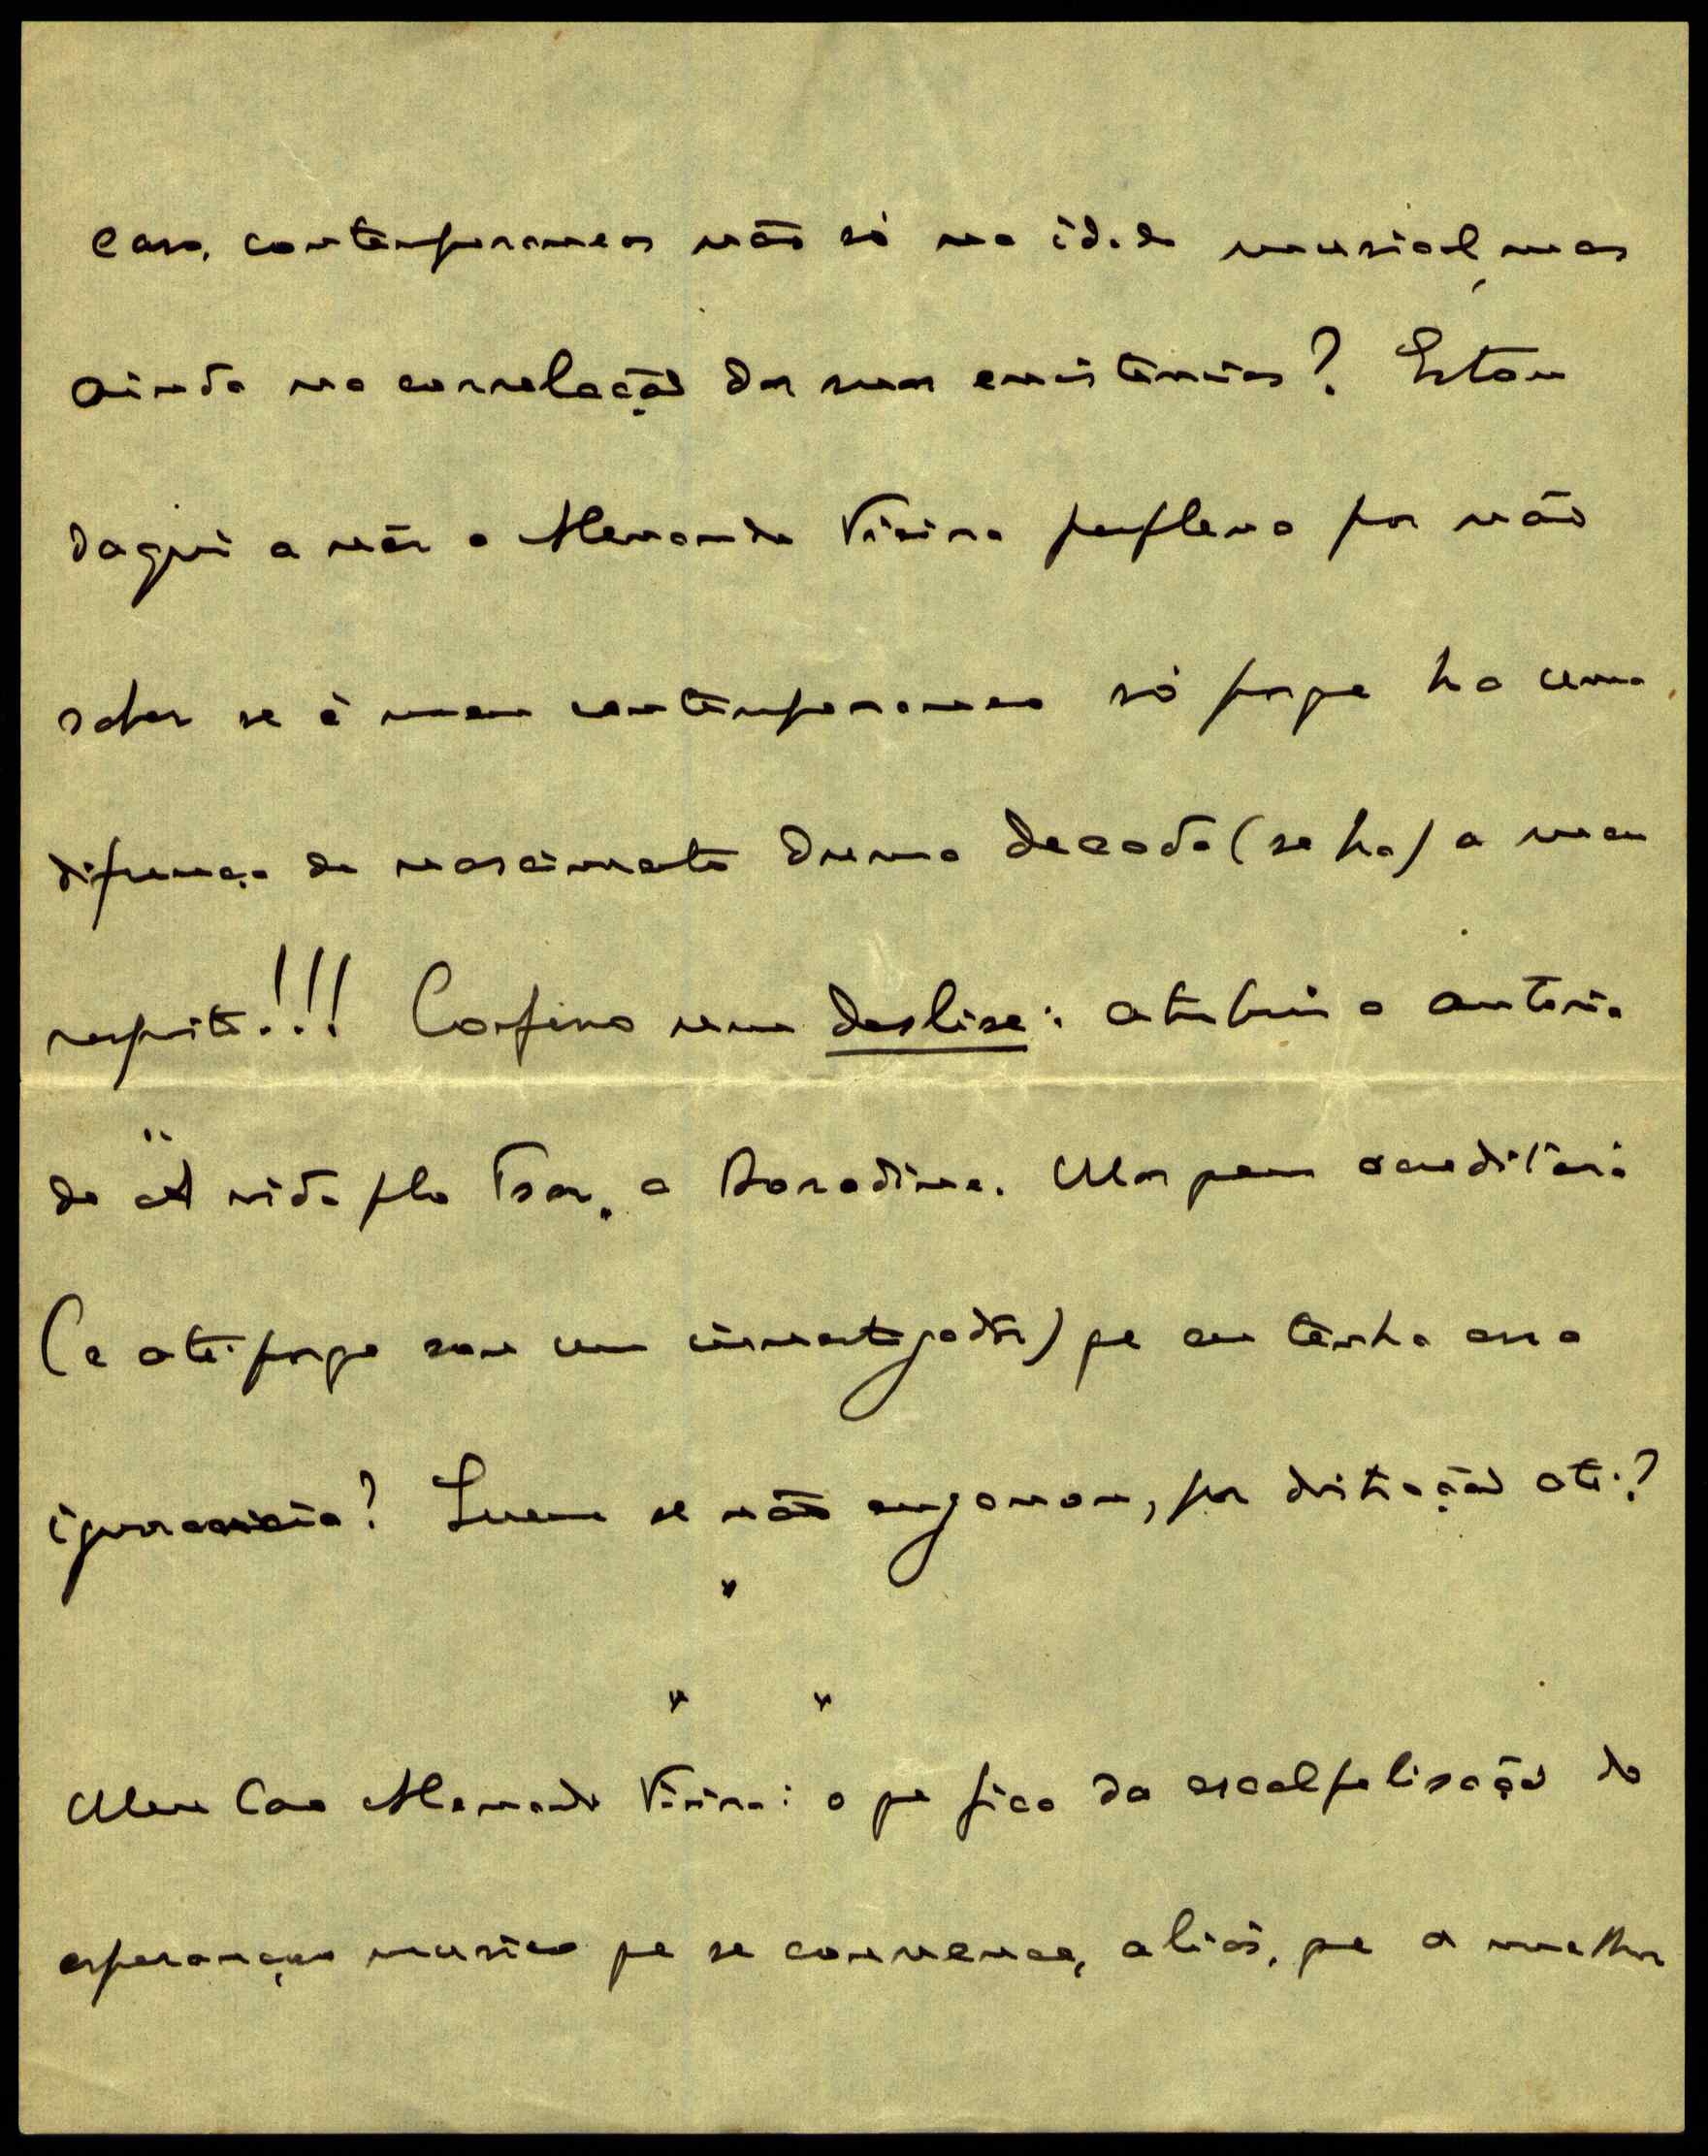 caso, contemporaneos não só na idade musical, mas
ainda na correlação das suas existências? Estou
daqui a vêr o Alexandre Vieira perplexo por não
saber se é meu contemporaneo só porque ha uma
diferença de nascimento duma decada (se ha) a meu
respeito!!! Confesso um deslise: atribui a autoria
de "A vida pelo Tsar" a Borodine. Mas quem acreditará
(e até porque sou um investigador) que eu tenha essa
ignorancia? Quem se não enganou, por distração até?
* * *
Meu Caro Alexandre Vieira: o que fica da escalpelisação do
esperançoso musico que se convence, aliás, que a melhor